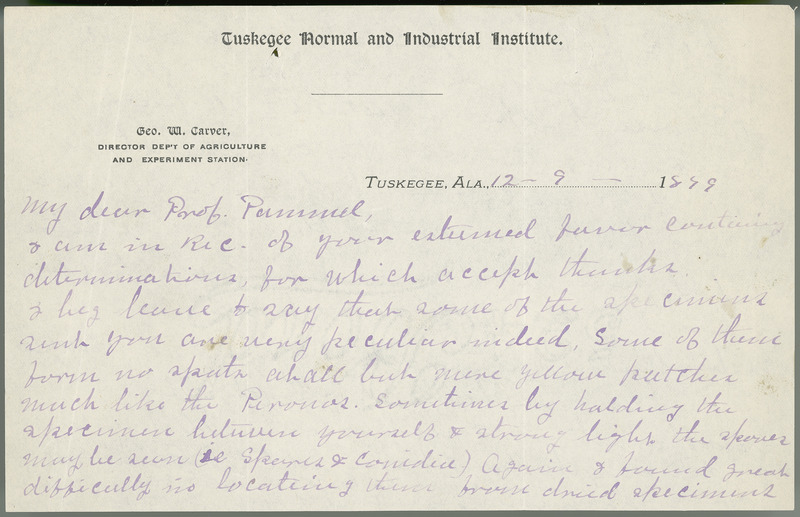 Tuskegee Normal and Industrial Institute.
Geo. W. Carver,
DIRECTOR DEP'T OF AGRICULTURE
AND EXPERIMENT STATION.
TUSKEGEE, ALA., 12 - 9 - 1899
My dear Prof. Pammel,
I am in Rec. of your estumed favor contining
determinations, for which accept thanks.
I beg leave to say that some of the specimens
sent you are very peculiar indeed, Some of them
form no spots atall but mere yellow patches
much like the Peronos. Sometimes by holding the
specimen between yourself & strong light the spores
may be seen ( Spores & Conidia) Again I found great
difficully in locating them from dried specimens